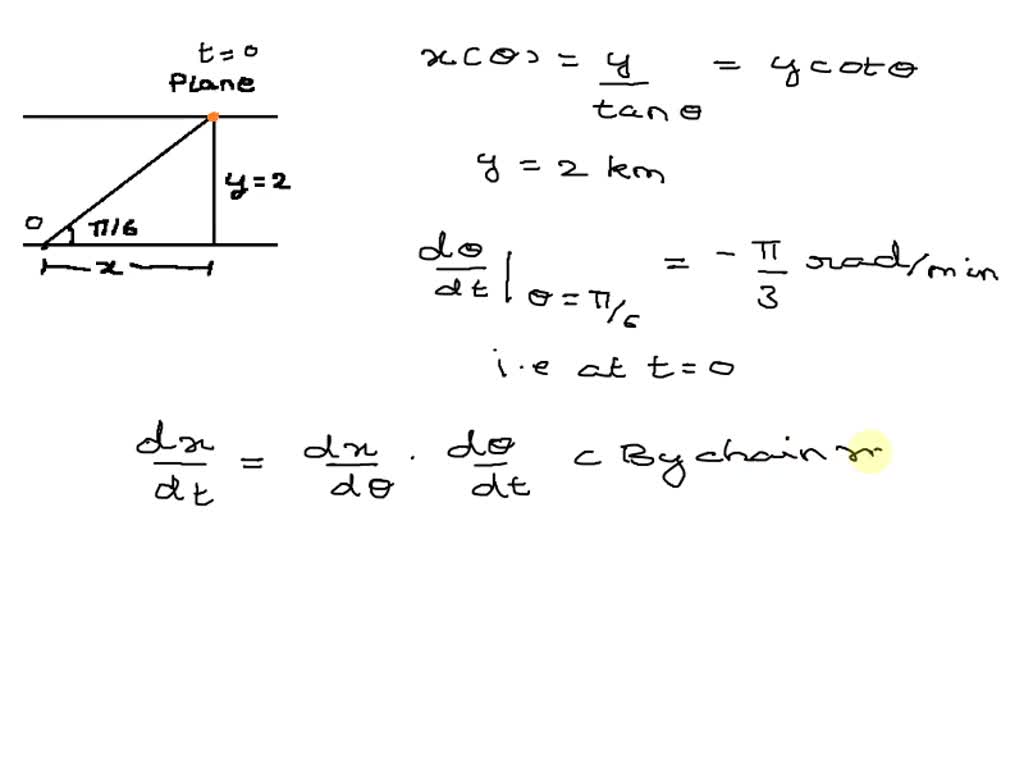 t=0
Plane
y=2
O
π/6
x
x(θ) = y/tanθ = y cotθ
y = 2 km
dθ/dt |θ=π/6 = -π/3 rad/min
i.e at t=0
dx/dt = dx/dθ · dθ/dt ( By chain r